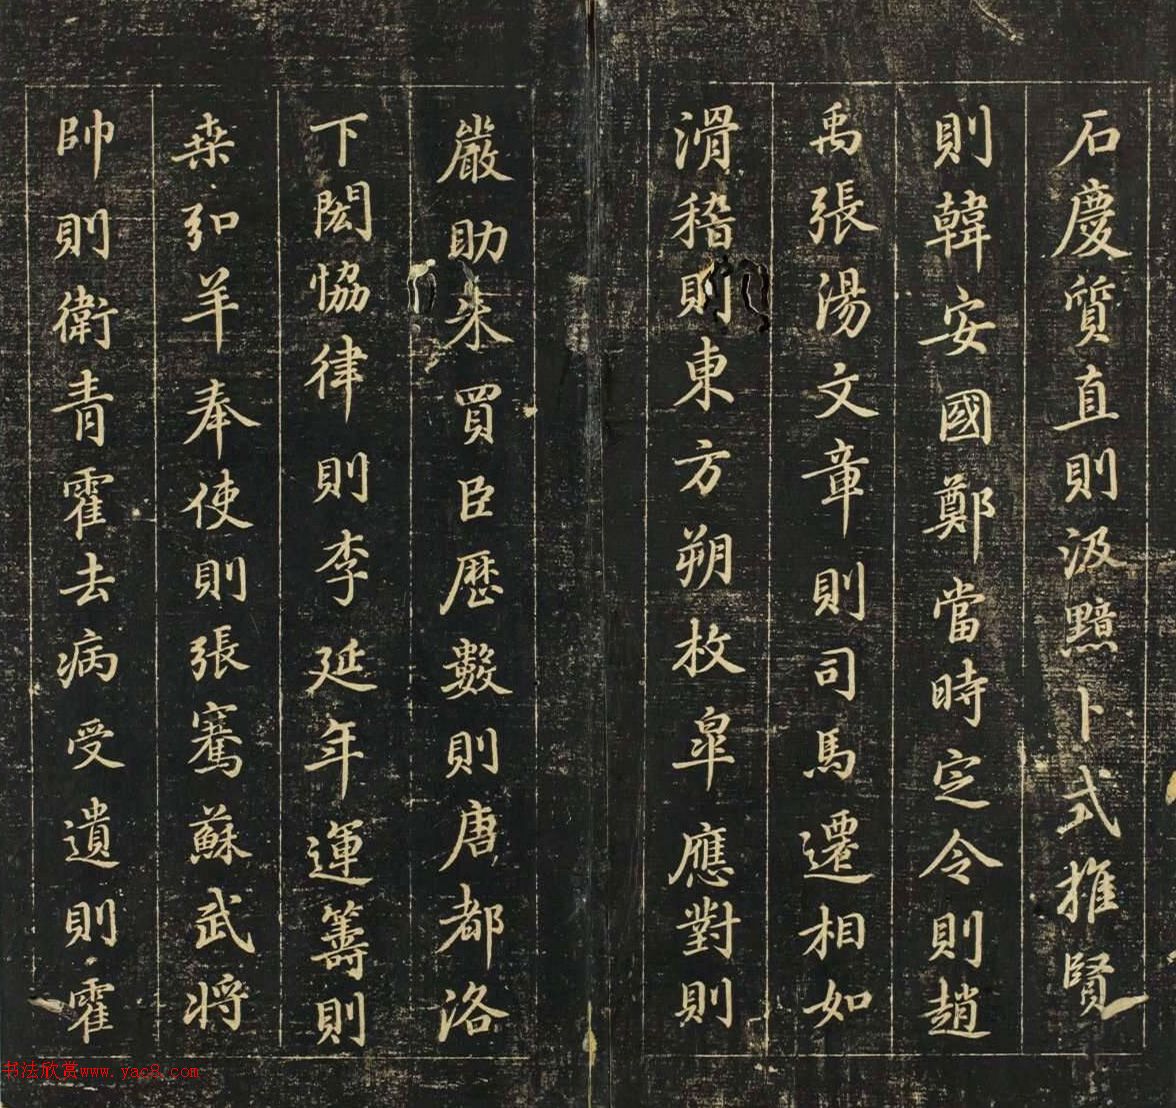 石慶質直則汲黯卜式推賢
則韓安國鄭當時定令則趙
禹張湯文章則司馬遷相如
滑稽則東方朔枚皐應對則
嚴助朱買臣歷數則唐都洛
下閎協律則李延年運籌則
桒弘羊奉使則張騫蘇武將
帥則衛青霍去病受遺則霍
书法欣赏www.yac8.com